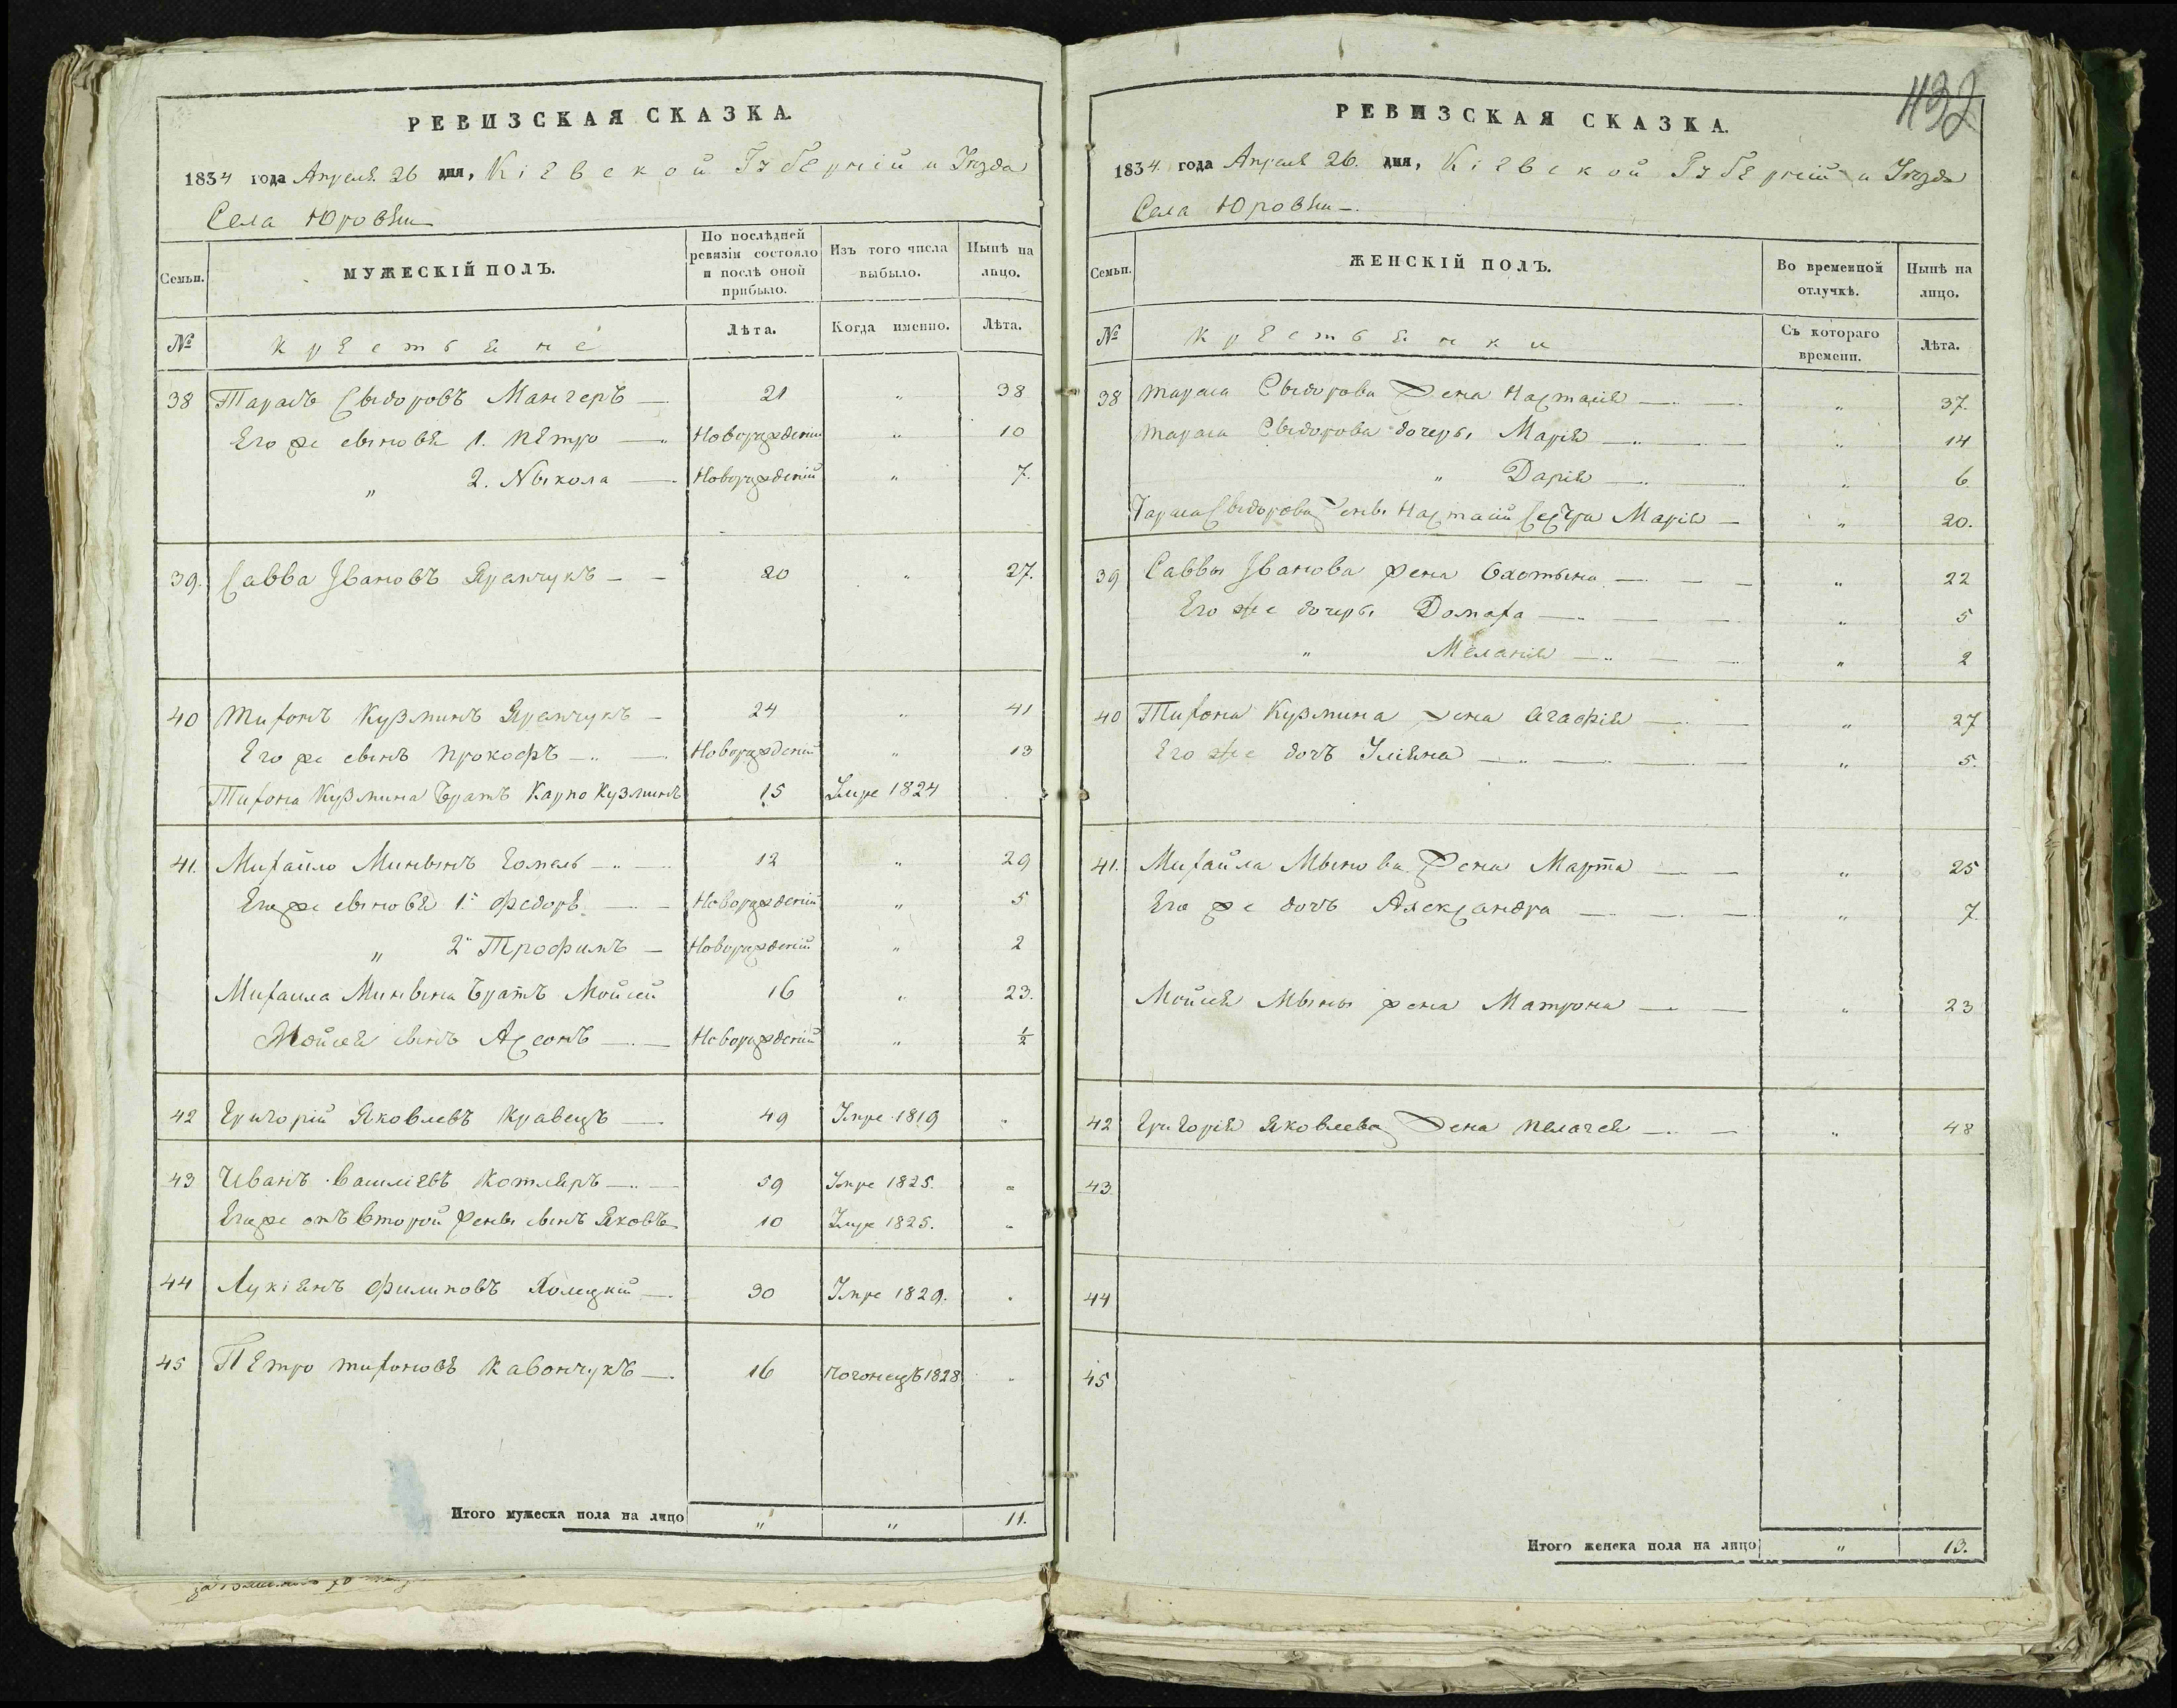 РЕВИЗСКАЯ СКАЗКА.
1834 года Апреля 26 дня, Кіевской Губерніи и Уезда
Села Юровки
Семьи.
МУЖЕСКІЙ ПОЛЪ.
По послѣдней ревизіи состояло и послѣ оной прибыло.
Изъ того числа выбыло.
Нынѣ на лицо.
№
крестьяне
Лѣта.
Когда именно.
Лѣта.
38 Тарасъ Сыдоровъ Мангеръ — 21 „ 38
Его же сыновя 1. Петро — Новорожденій „ 10
„ 2. Никола — Новорожденій „ 7.
39. Савва Ивановъ Яремчукъ — — 20 „ 27.
40 Тихонъ Кузминъ Яремчукъ — 24 „ 41
Его же сынъ Прокофъ — Новорожденій „ 13
Тихона Кузмина братъ Карпо Кузминъ 15 Умре 1824 .
41. Михайло Минвинъ Гомель — 12 „ 29
Его же сыновя 1й Федоръ — Новорожденій „ 5
„ 2й Трофимъ — Новорожденій „ 2
Михаила Минвина братъ Мойсей 16 „ 23.
Мойсея сынъ Аксонъ — Новорожденій „ ½
42 Григорій Яковлевъ Кравецъ — 49 Умре 1819 „
43 Иванъ Василіевъ Котляръ — 59 Умре 1825. „
Его же отъ второй жены сынъ Яковъ 10 Умре 1825. „
44 Лукіянъ Филиповъ — 30 Умре 1829. .
45 Петро Тихоновъ Кавончукъ — 16 погонецъ 1828 „
Итого мужеска пола на лицо „ „ 11.
432
РЕВИЗСКАЯ СКАЗКА.
1834 года Апреля 26. дня, Кіевской Губерніи и Уезда
Села Юровки —.
Семьи.
ЖЕНСКІЙ ПОЛЪ.
Во временной отлучкѣ.
Нынѣ на лицо.
№
крестьянки
Съ котораго времени.
Лѣта.
38 Тараса Сыдорова жена Настасія — „ 37.
Тараса Сыдорова дочеры Марія — „ 14
„ Дарія — „ 6.
Тараса Сыдорова жены Настасіи Сестра Марія — „ 20.
39 Саввы Иванова жена Охотына — „ 22
Его же дочеры Домаха — „ 5
„ Меланія — „ 2
40 Тихона Кузмина жена Агафія — „ 27
Его же дочъ Уліяна — „ 5.
41. Михайла Мынова жена Марта — „ 25
Его же дочъ Александра — „ 7.
Мойсея Мины жена Матрона — „ 23
42 Григорія Яковлева жена Пелагея — „ 48
43
44
45
Итого женска пола на лицо „ 13.